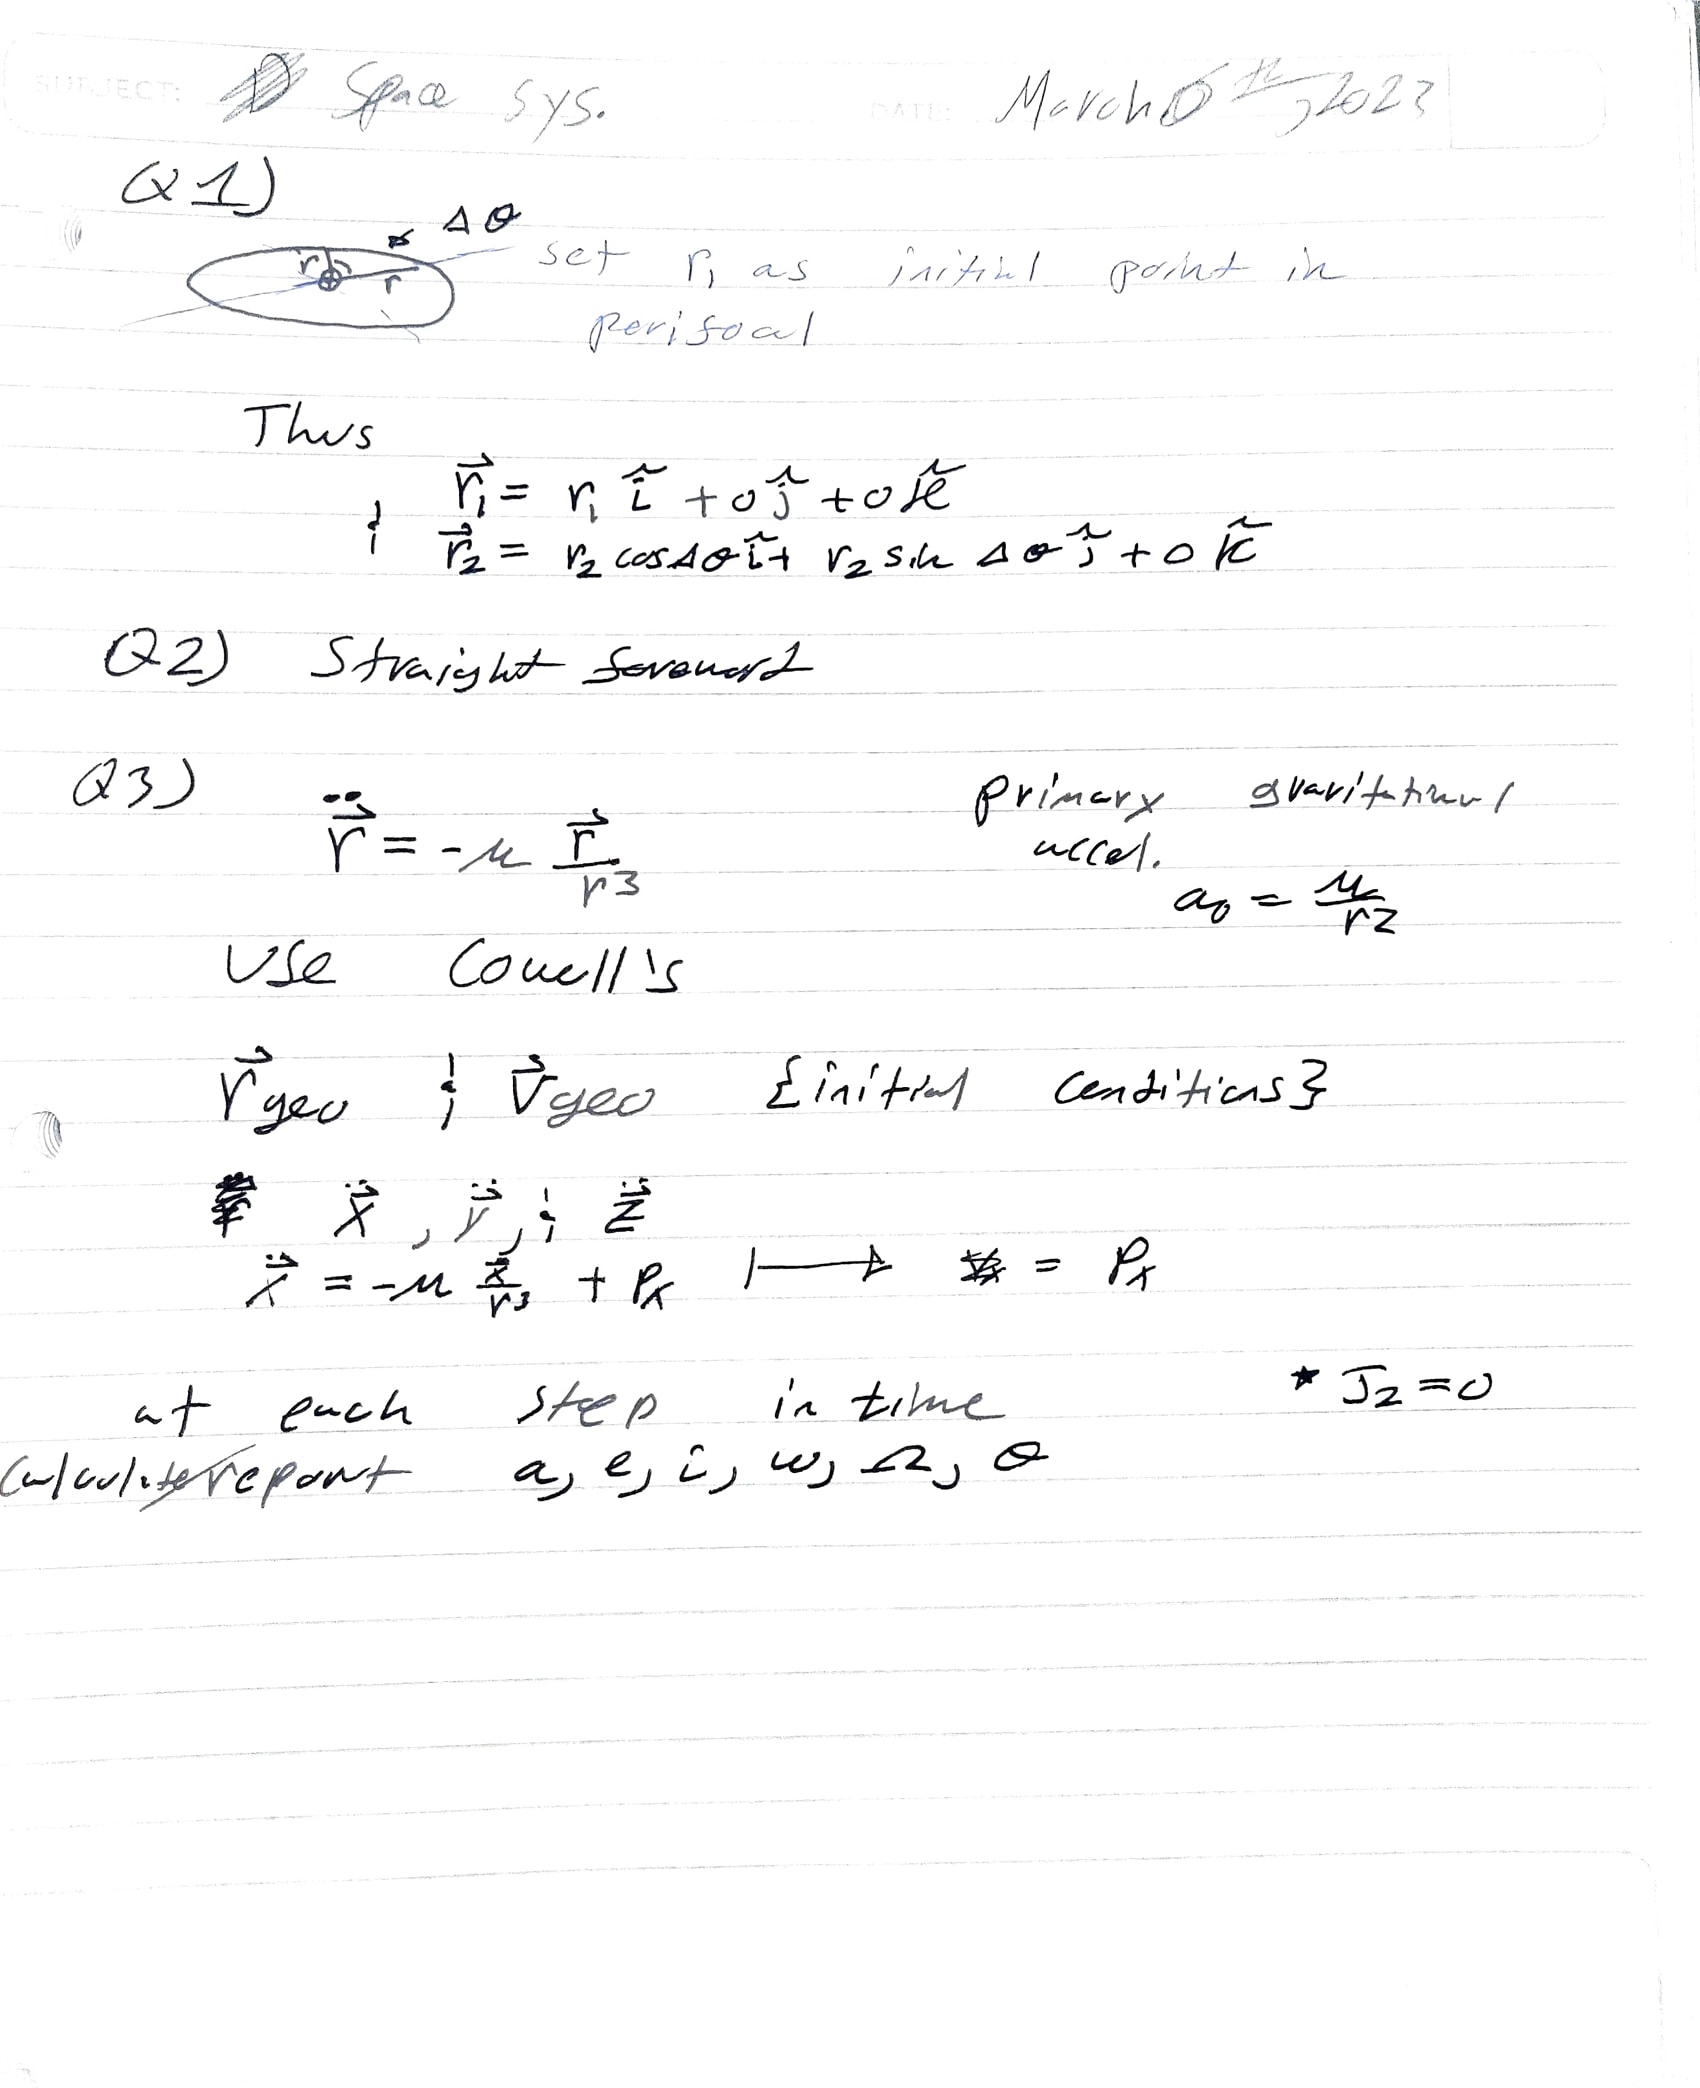 SUBJECT: Space Sys. DATE: March 6th, 2023
Q1)
Δθ
r r
set r₁ as initial point in
perifocal
Thus
r⃗₁ = r₁ î + 0ĵ + 0k̂
& r⃗₂ = r₂ cosΔθ î + r₂ sin Δθ ĵ + 0 k̂
Q2) Straight foreward
Q3)
r⃗̈ = -μ r⃗/r³
primary gravitational
accel.
a₀ = μ/r²
Use Cowell's
r⃗geo & v⃗geo {initial conditions}
x⃗̈, y⃗̈, & z⃗̈
x⃗̈ = -μ x⃗/r³ + Pₓ ↦ = Pₓ
at each step in time
* J₂=0
Calculate/report a, e, i, ω, Ω, θ